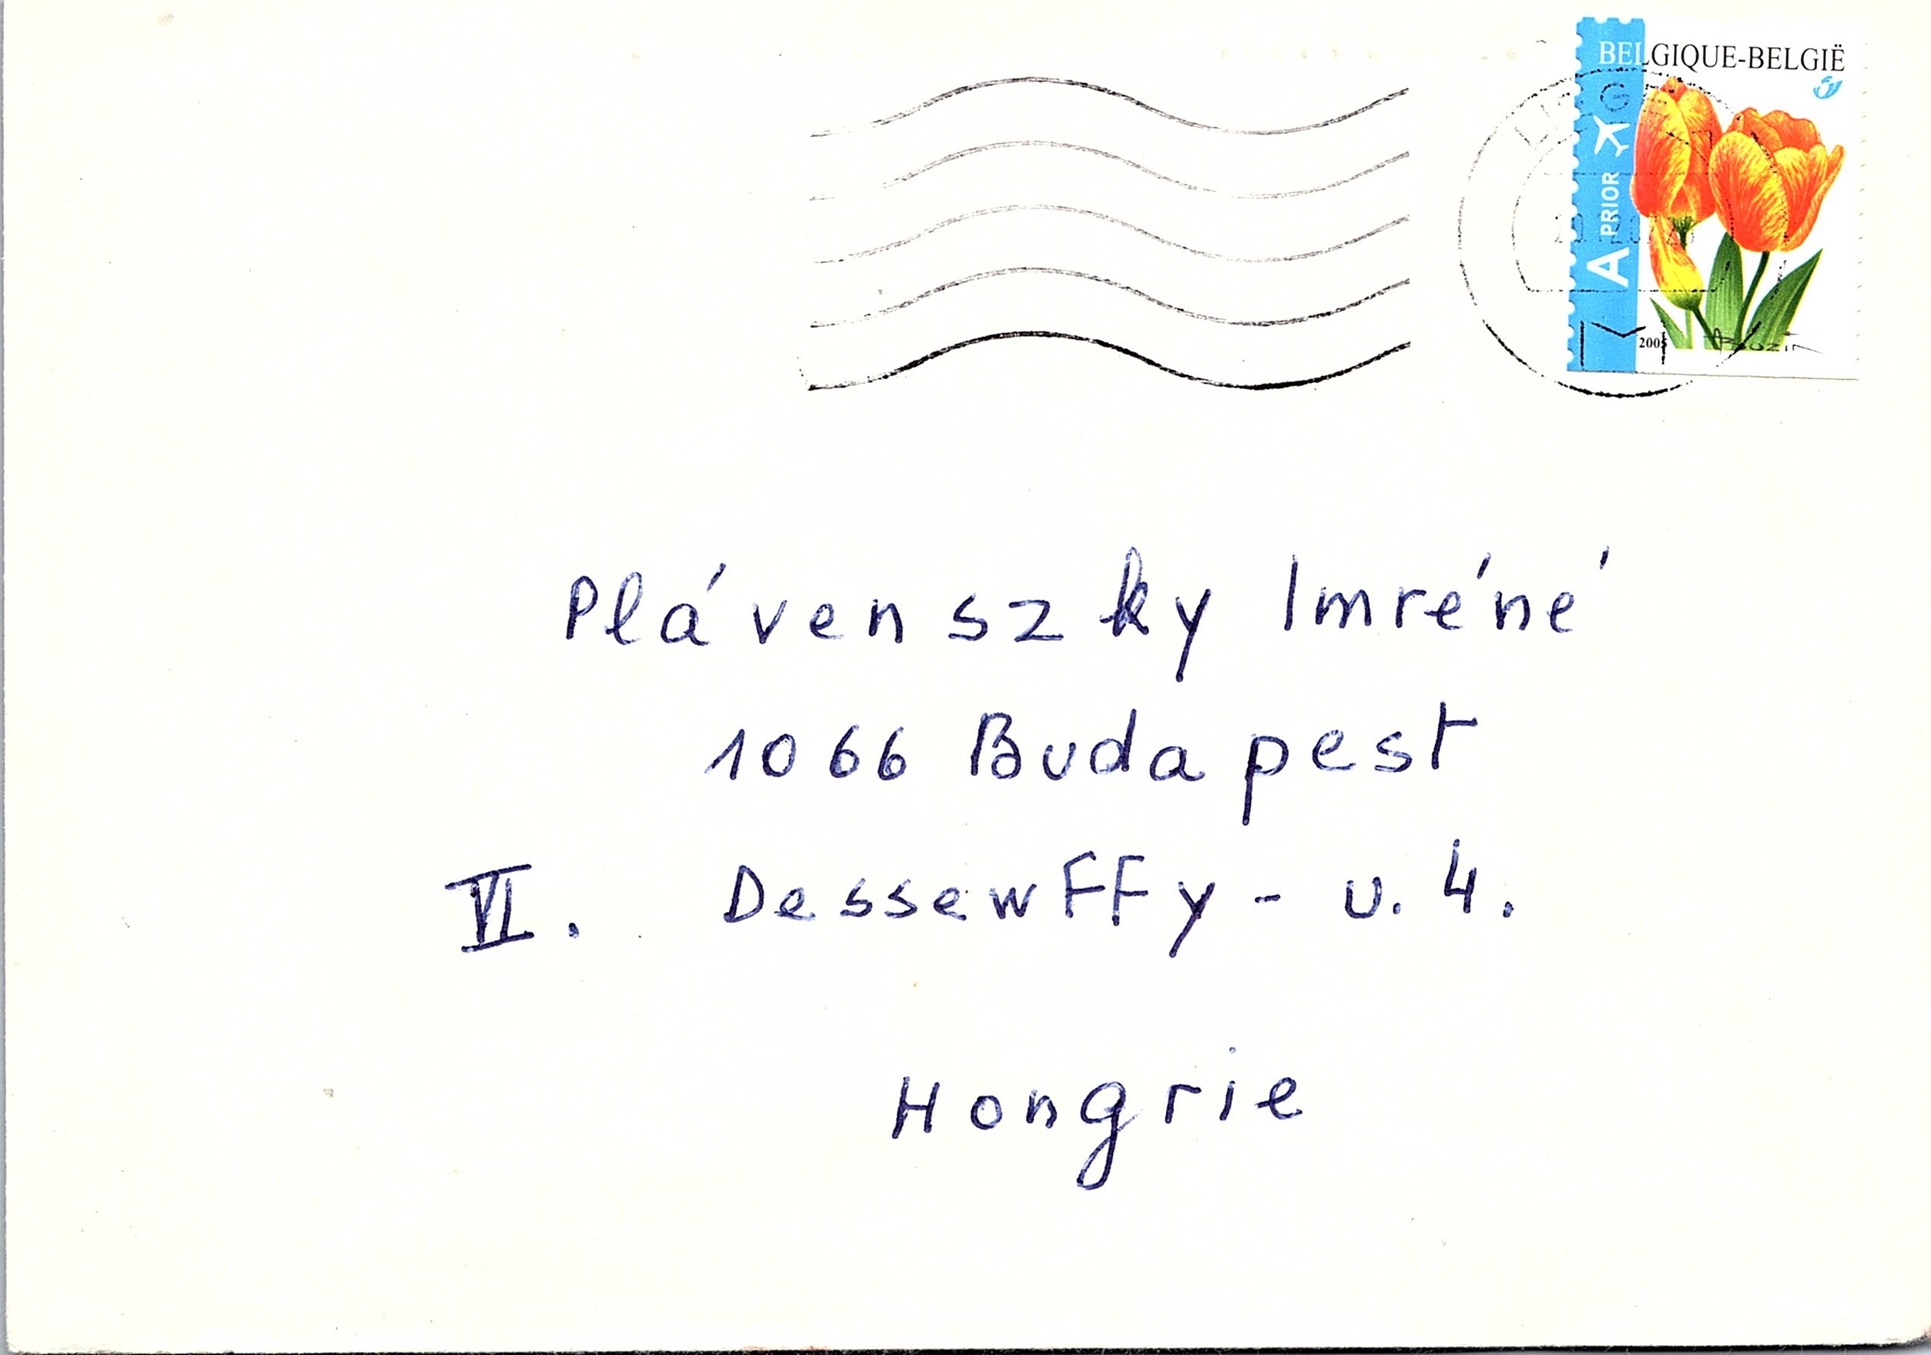 BELGIQUE-BELGIË
A PRIOR
2005
BUZIN
Plávenszky Imréné
1066 Budapest
VI. Dessewffy - u. 4.
Hongrie